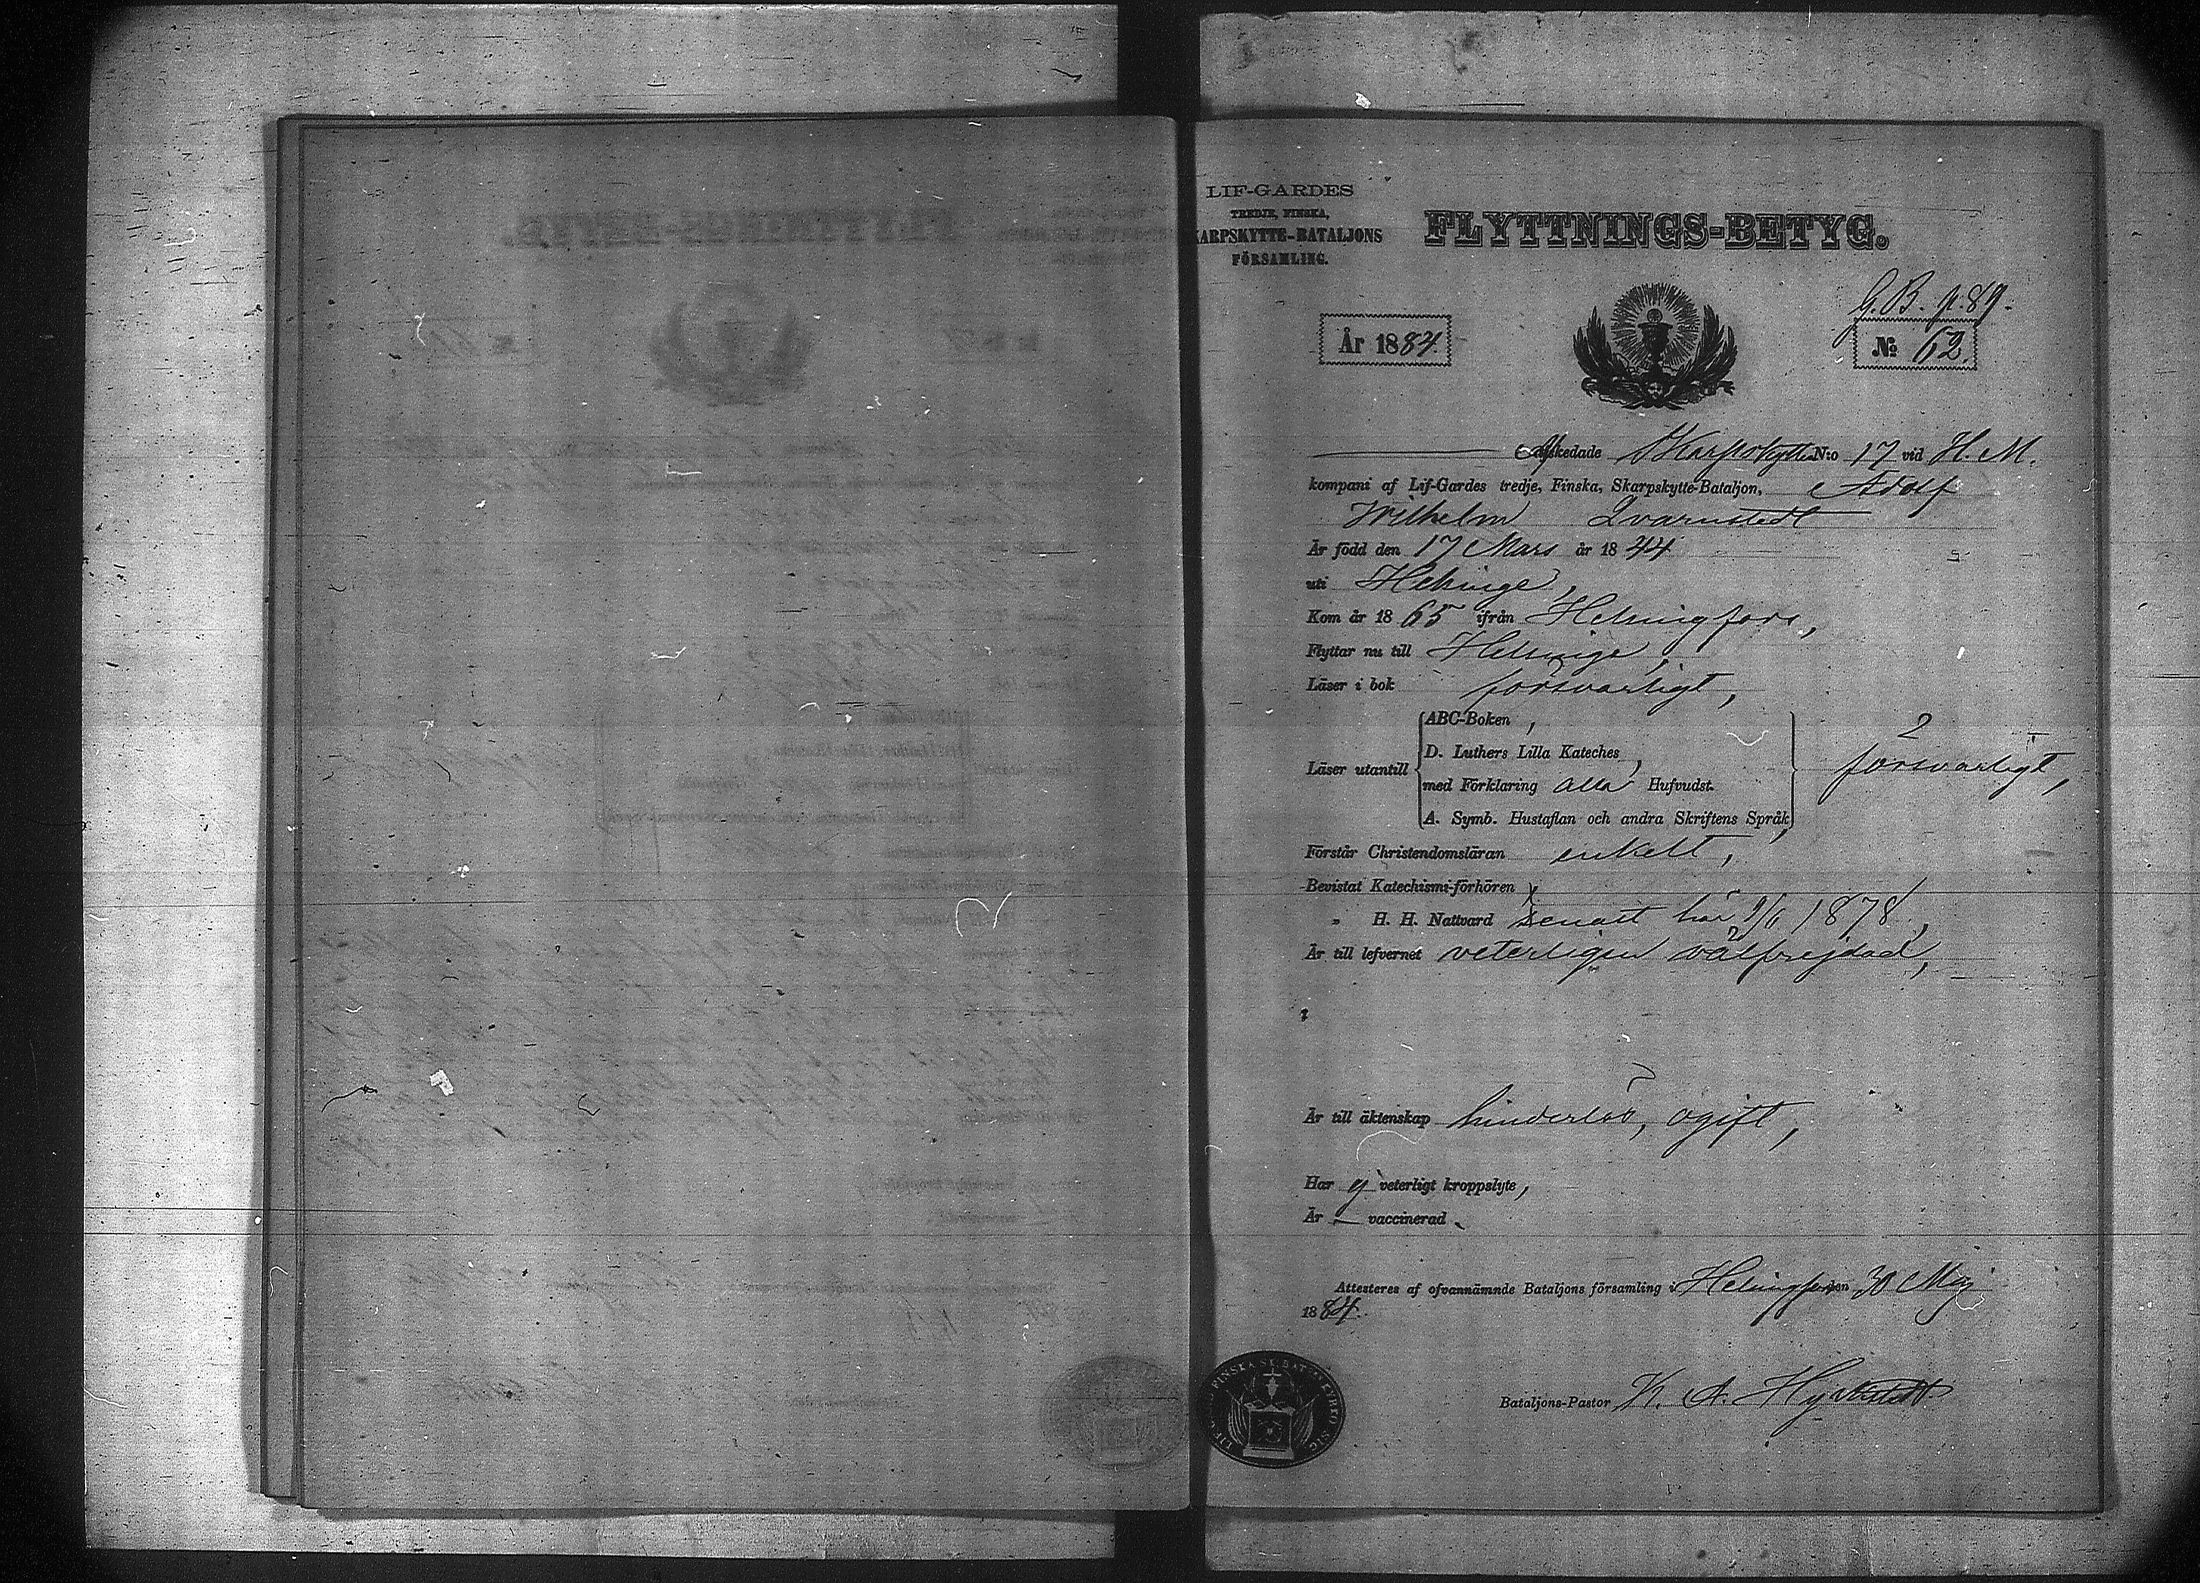 LIF-GARDES
TREDJE, FINSKA,
KARPSKYTTE-BATALJONS
FÖRSAMLING.
FLYTTNINGS-BETYG.
G. B. p. 89.
År 1884.
№ 62.
Afskedade Skarpskytten N:o 17 vid H. M.
kompani af Lif-Gardes tredje, Finska, Skarpskytte-Bataljon, Adolf
Wilhelm Qvarnstedt
Är född den 17 Mars år 1844
uti Helsinge,
Kom år 1865 ifrån Helsingfors,
Flyttar nu till Helsinge,
Läser i bok försvarligt,
Läser utantill
ABC-Boken,
D. Luthers Lilla Kateches,
med Förklaring alla Hufvudst.
A. Symb. Hustaflan och andra Skriftens Språk,
försvarligt,
Förstår Christendomsläran enkelt,
Bevistat Katechismi-förhören
" H. H. Nattvard senast här 9/6 1878,
Är till lefvernet veterligen välfrejdad,
Är till äktenskap hinderlös, ogift,
Har ej veterligt kroppslyte,
Är — vaccinerad.
Attesteres af ofvannämnde Bataljons församling i Helsingfors den 30 Maj
1884.
Bataljons-Pastor K. A. Hyrnstedt